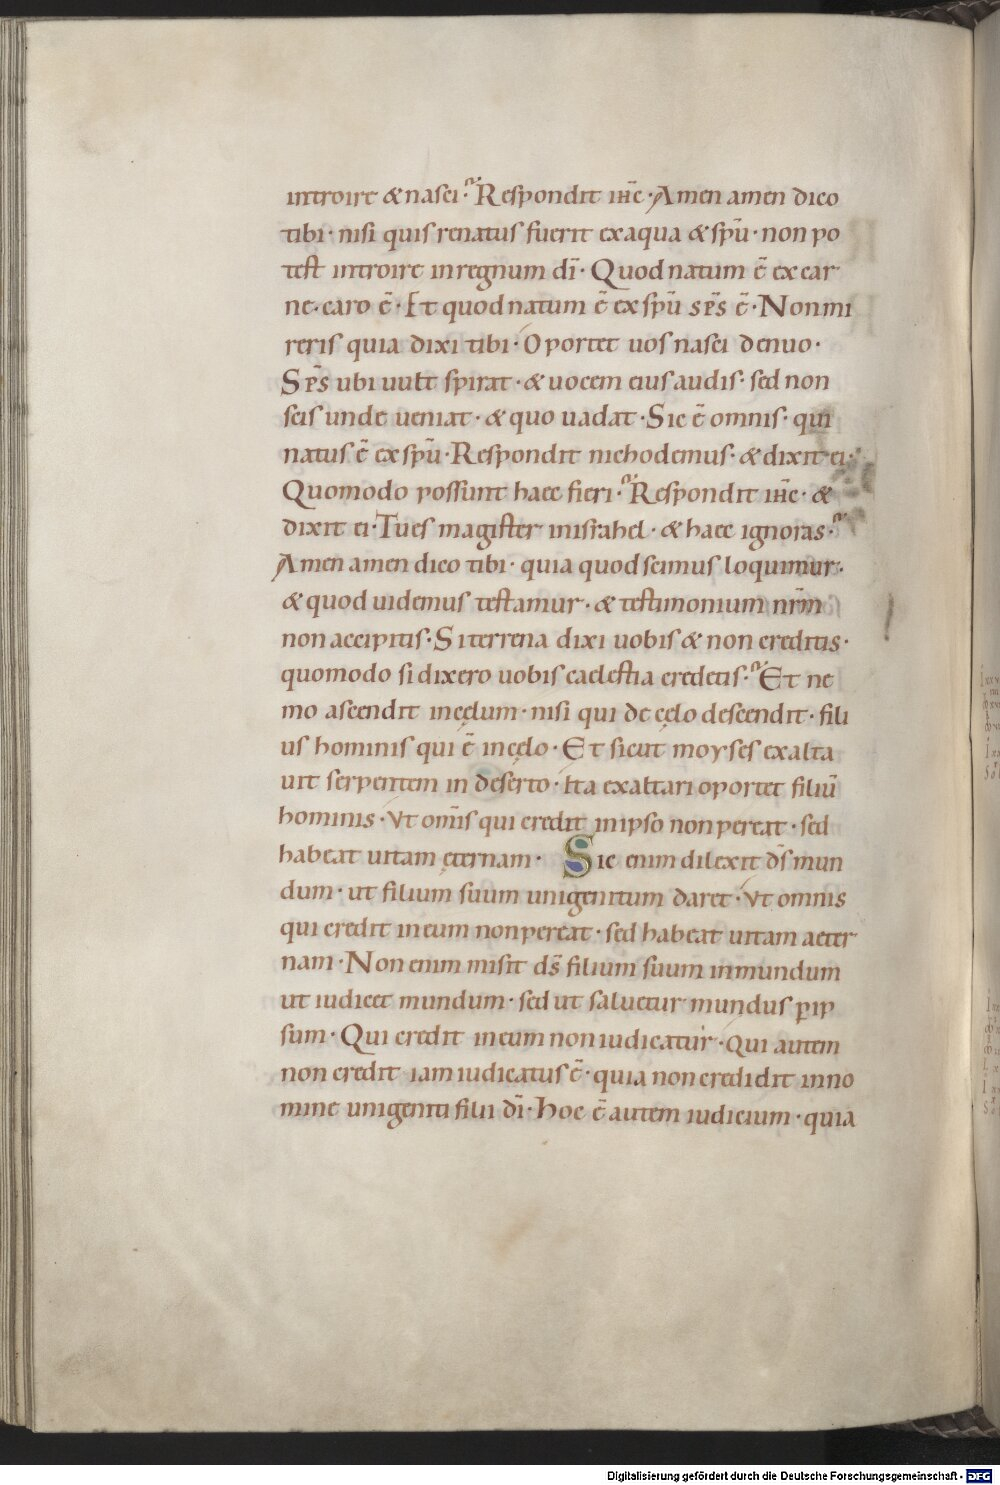 introire & nasci? Respondit ihc · Amen amen dico
tibi · nisi quis renatus fuerit ex aqua & spu · non po
test introire in regnum di · Quod natum ē ex car
ne · caro ē · Et quod natum ē ex spu sps ē · Non mi
reris quia dixi tibi · Oportet uos nasci denuo ·
Sps ubi uult spirat · & uocem eius audis · sed non
scis unde ueniat · & quo uadat · Sic ē omnis · qui
natus ē ex spu · Respondit nichodemus · & dixit ei ·
Quomodo possunt haec fieri? Respondit ihc · &
dixit ei · Tu es magister in israhel · & haec ignoras?
Amen amen dico tibi · quia quod scimus loquimur ·
& quod uidemus testamur · & testimonium nrm
non accipitis · Si terrena dixi uobis & non creditis ·
quomodo si dixero uobis caelestia credetis? Et ne
mo ascendit in cęlum · nisi qui de cęlo descendit · fili
us hominis qui ē in cęlo · Et sicut moyses exalta
uit serpentem in deserto · Ita exaltari oportet filiū
hominis · Vt omis qui credit in ipso non pereat · sed
habeat uitam ęternam · Sic enim dilexit ds mun
dum · ut filium suum unigenitum daret · Vt omnis
qui credit in eum non pereat · sed habeat uitam aeter
nam · Non enim misit ds filium suum in mundum
ut iudicet mundum · sed ut saluetur mundus p ip
sum · Qui credit in eum non iudicatur · Qui autem
non credit iam iudicatus ē · quia non credidit in no
mine unigeniti filii di · Hoc ē autem iudicium · quia
Digitalisierung gefördert durch die Deutsche Forschungsgemeinschaft - DFG